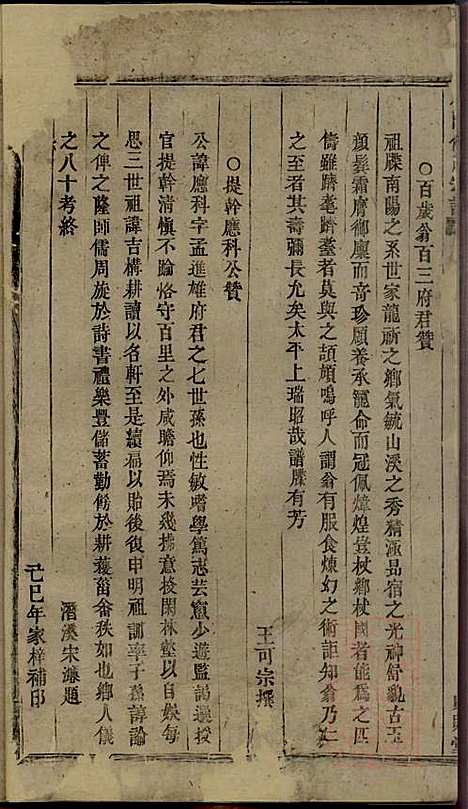 ○百歲翁百三府君贊
祖牒南陽之系世家龍祈之鄉氣毓山溪之秀精涵品宿之光神舒貌古玉
顏鬂霜膺御廩而奇珍願養承寵命而冠佩煒煌豈杖鄉杖國者能爲之匹
儔雖躋耄躋耋者莫與之頡頏嗚呼人謂翁有服食煉幻之術詎知翁乃仁
之至者其壽彌長允矣太平上瑞昭哉譜牒有芳
王可宗撰
○提幹應科公贊
公諱應科字孟進雄府君之七世孫也性敏嗜學篤志芸窻少遊監謁選授
官提幹清愼不踰恪守百里之外咸瞻仰焉未幾拂意投閑林壑以自娱每
思三世祖諱吉構耕讀以名軒至是續扁以貽後復申明祖訓率子孫諄論
之俾之隆師儒周旋於詩書禮樂豐儲蓄勤傍於耕穫菑畬秩如也鄉人儀
之八十考終
潛溪宋濂題
己巳年家梓補印